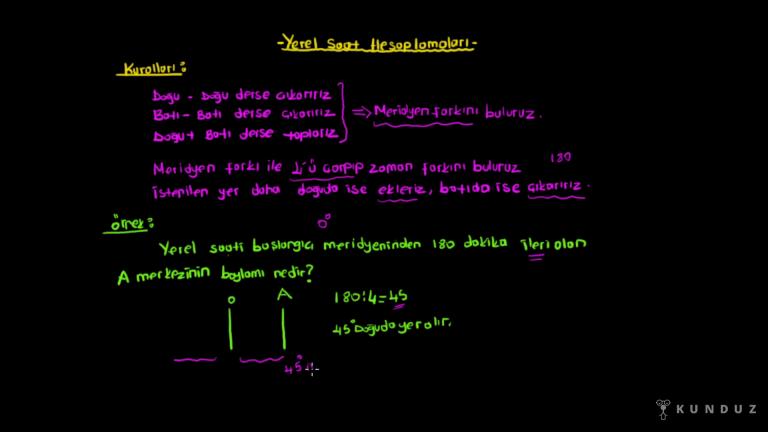 -Yerel Saat Hesaplamaları-
Kuralları:
Doğu - Doğu derse çıkarırız
Batı - Batı derse çıkarırız
Doğu + Batı derse toplarız
⇒ Meridyen farkını buluruz.
Meridyen farkı ile 4'ü çarpıp zaman farkını buluruz
180
İstenilen yer daha doğuda ise ekleriz, batıda ise çıkarırız.
Örnek:
0°
Yerel saati başlangıç meridyeninden 180 dakika ileri olan
A merkezinin boylamı nedir?
0 A
180:4=45
45° Doğuda yer alır.
45°
KUNDUZ